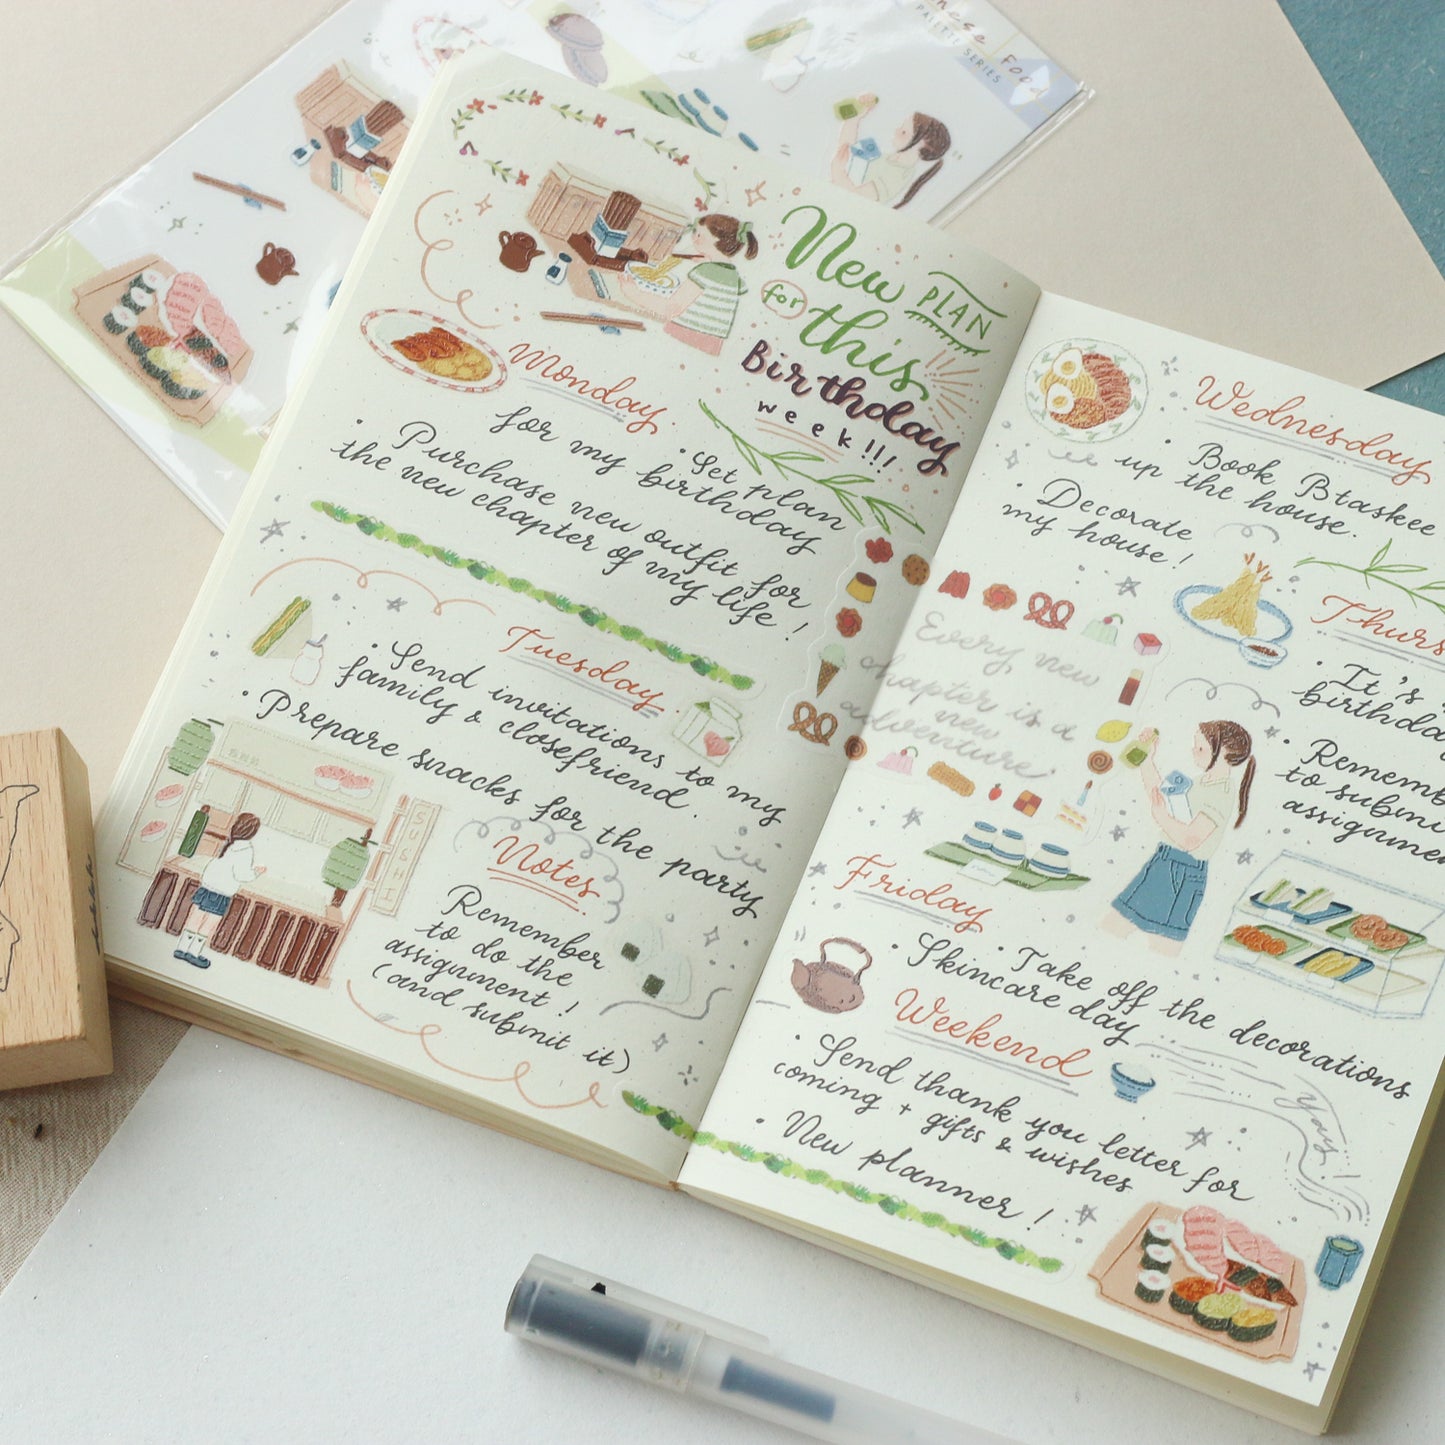 Food
PALETTE SERIES
New PLAN
for this
Birthday
week!!!
Monday
• Set plan
for my birthday
• Purchase new outfit for
the new chapter of my life!
Tuesday
• Send invitations to my
family & closefriend.
• Prepare snacks for the party
SUSHI
Notes
Remember
to do the
assignment!
(and submit it)
Every new
chapter is a
new
adventure
Wednesday
• Book Btaskee
up the house.
• Decorate
my house!
Thurs
• It's
birthday
• Remem
to submi
assignmen
Friday
• Take off the decorations
• Skincare day
Weekend
• Send thank you letter for
coming + gifts & wishes
• New planner!
Yays!